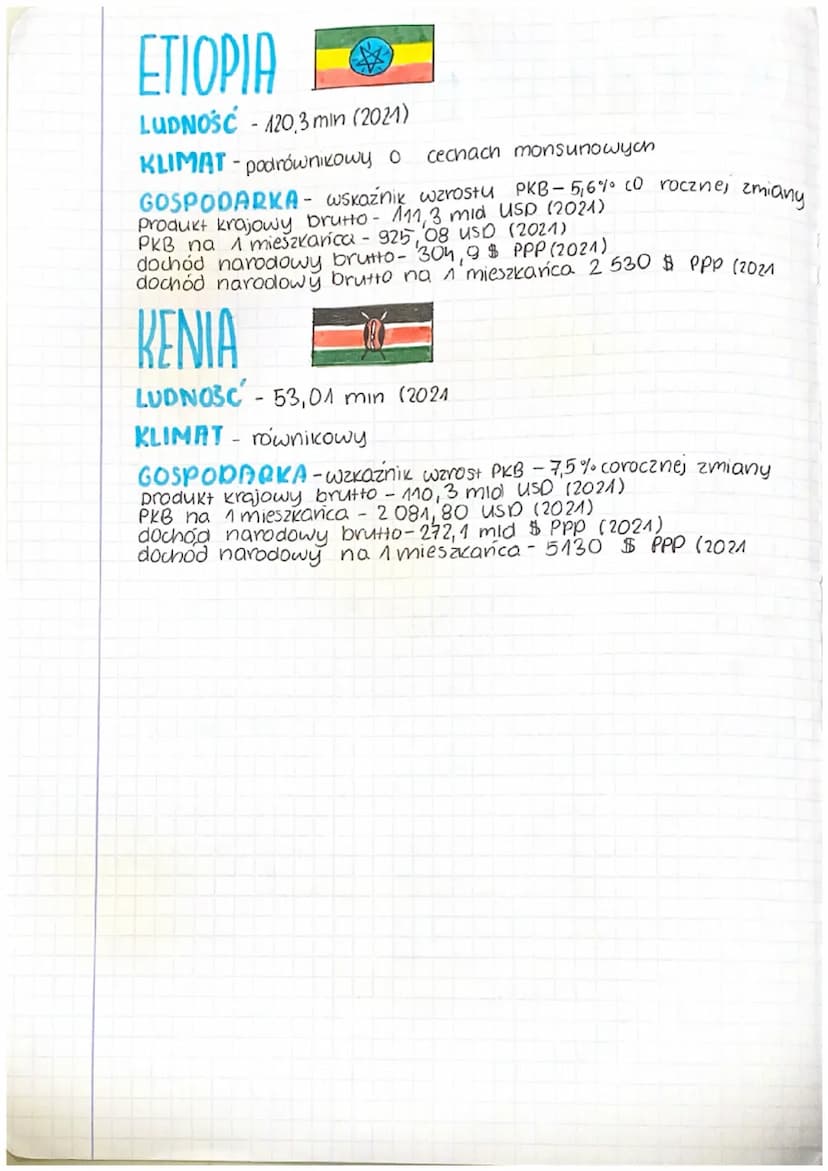 ETIOPIA
LUDNOŚĆ - 120,3 mln (2021)
KLIMAT - podrównikowy o cechach monsunowych
GOSPODARKA - wskaźnik wzrostu PKB - 5,6% co rocznej zmiany
produkt krajowy brutto - 111,3 mld USD (2021)
PKB na 1 mieszkańca - 925,08 USD (2021)
dochód narodowy brutto - 304,9 $ PPP (2021)
dochód narodowy brutto na 1 mieszkańca 2 530 $ PPP (2021
KENIA
LUDNOŚĆ - 53,01 mln (2021
KLIMAT - równikowy
GOSPODARKA - wzkaźnik wzrost PKB - 7,5% corocznej zmiany
produkt krajowy brutto - 110,3 mld USD (2021)
PKB na 1 mieszkańca - 2 081,80 USD (2021)
dochód narodowy brutto - 272,1 mld $ PPP (2021)
dochód narodowy na 1 mieszkańca - 5130 $ PPP (2021